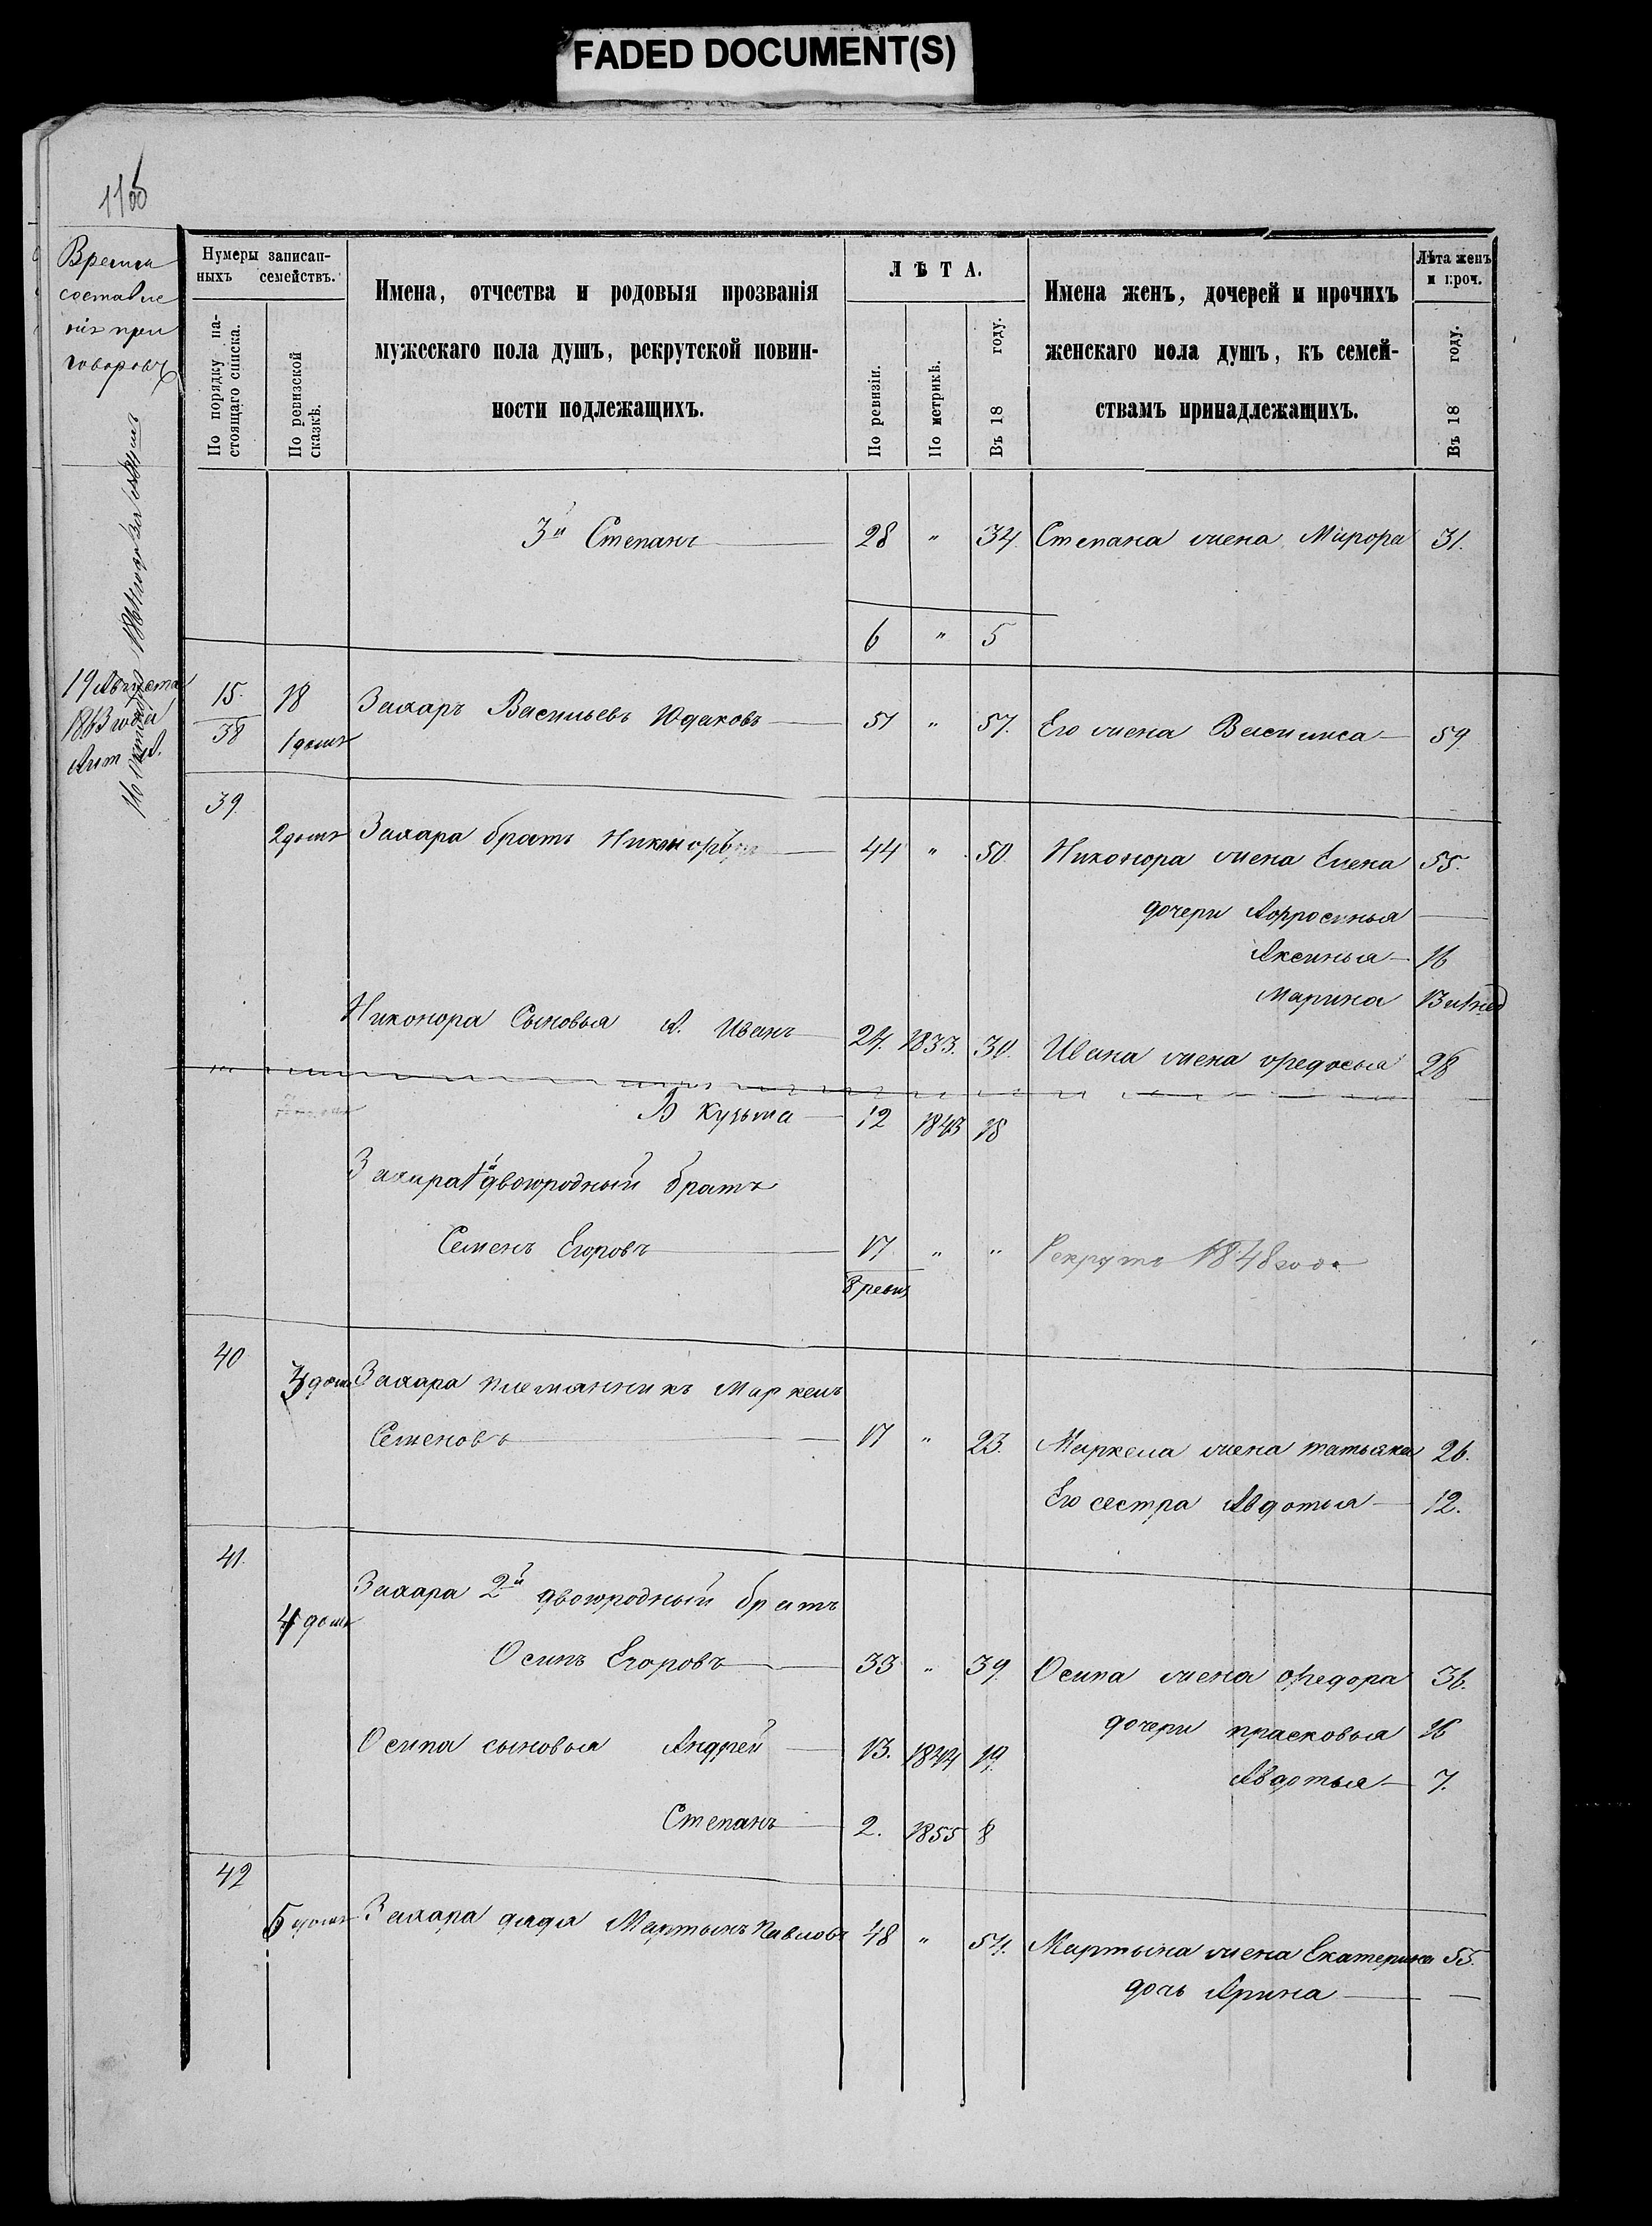 FADED DOCUMENT(S)
Время
составле
нія при
говоровъ
Нумеры записан-
ныхъ семействъ.
По порядку на-
стоящаго списка.
По ревизской
сказкѣ.
Имена, отчества и родовыя прозванія
мужескаго пола душъ, рекрутской повин-
ности подлежащихъ.
ЛѢТА.
По ревизіи.
По метрикѣ.
Въ 18 году.
Имена женъ, дочерей и прочихъ
женскаго пола душъ, къ семей-
ствамъ принадлежащихъ.
Лѣта женъ
и проч.
Въ 18 году.
3й Степанъ 28 " 34. Степана жена 31.
6 " 5
19 Августа
1863 года
Лит А.
15. 18 Захаръ Васильевъ Юдаковъ 51 " 57. Его жена Василиса 59
38 1 домъ
39.
2 домъ Захара братъ Никоноръ 44 " 50. Никонора жена Елена 55.
дочери Афросинья
Аксинья 16
Марина 13
Никонора Сыновья А. Иванъ 24. 1833. 30. Ивана жена Федосья 28
В Кузьма 12 1843 18
Захара 1й двоюродный братъ
Семенъ Егоровъ 17 " " Рекрутъ 1848 года
8 ревиз
40
3 домъ Захара племянникъ Маркелъ
Семеновъ 17 " 23. Маркела жена татьяна 26.
Его сестра Авдотья 12.
41.
Захара 2й двоюродный братъ
4 домъ
Осипъ Егоровъ 33 " 39. Осипа жена Федора 36.
дочери прасковья 16
Осипа сыновья Андрей 13. 1844 19.
Авдотья 7.
Степанъ 2. 1855 8
42
5 домъ Захара дядя Мартынъ Павловъ 48 " 54. Мартына жена Екатерина 55.
дочь Арина